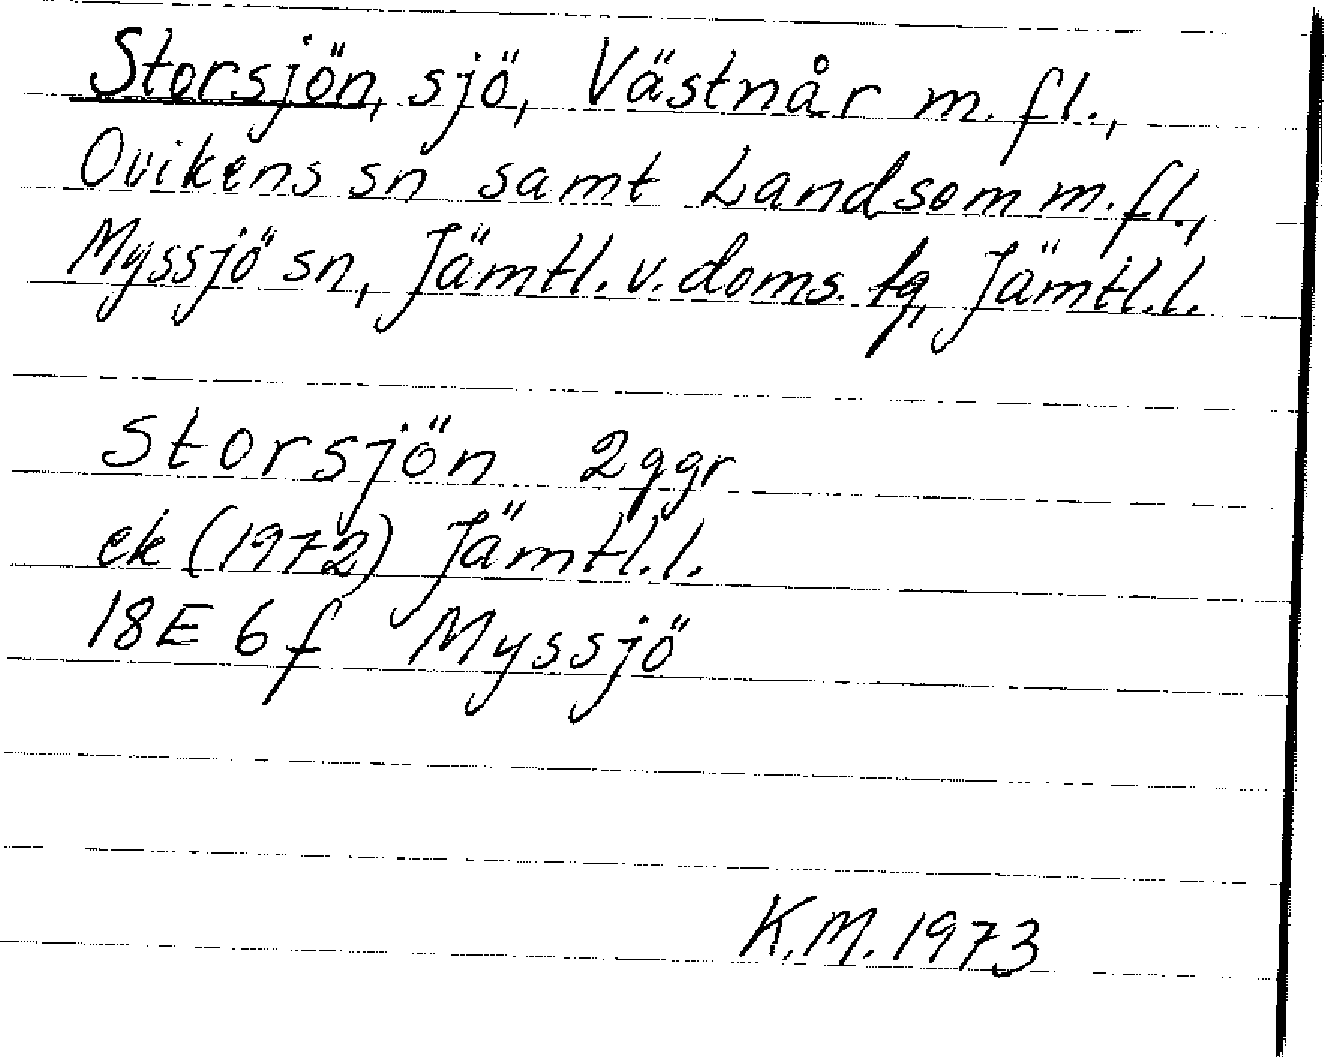 Storsjön, sjö, Västnår m.fl.,
Ovikens sn samt Landsom m.fl.,
Myssjö sn, Jämtl. v. doms. tg, Jämtl.l.
Storsjön 2ggr
ek (1972) Jämtl.l.
18E 6f Myssjö
K.M. 1973